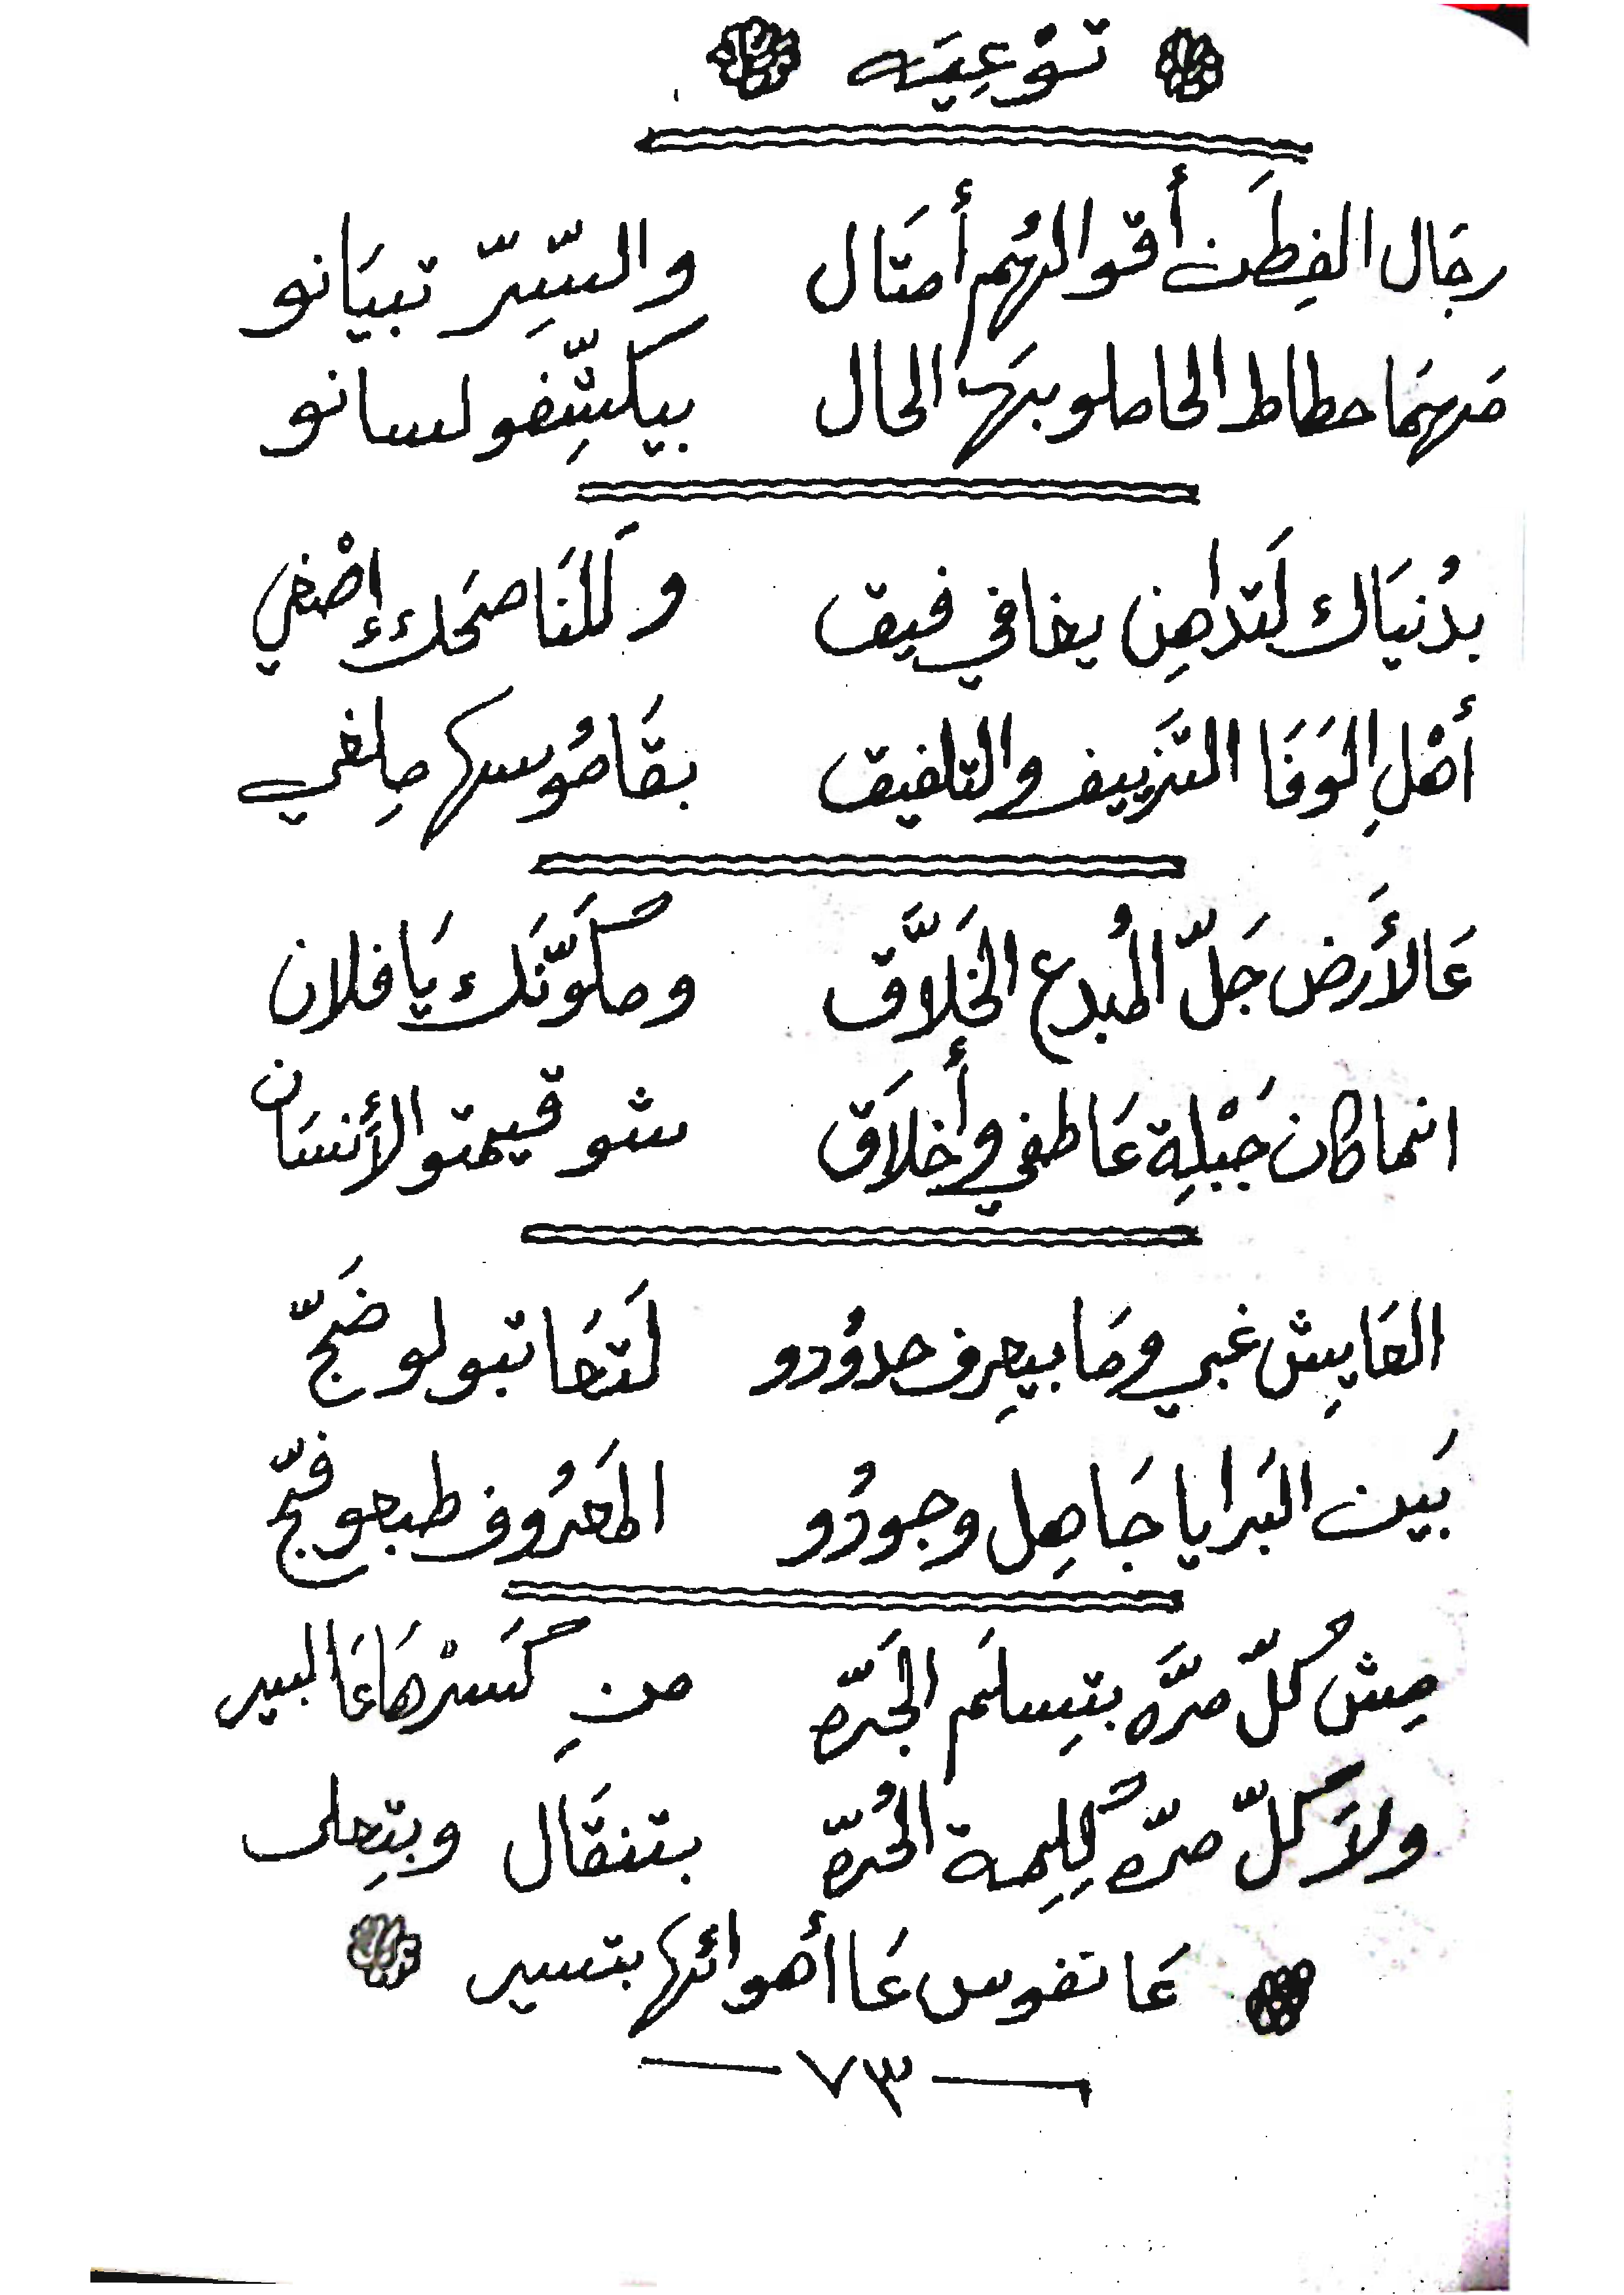 توْعِيَه
رجَال الفِطَن أقوالهُم أمتَال والسِّرّ تبيَانو
مَهمَا حطاط الحاملو بهَا الحال بيكشِّفو لسانو
بدُنيَاك لَتداهِن يخافي فيق ولَلنَاصحَك إصْغي
أهْلِ الوَفَا التَزييف والتلفيق بقَامُوسها مِلغي
عَالأَرض جَلّ المُبدع الخَلاَّق ومكَوَّنَك يَا فلان
انما كان جَبْلِة عَاطفي وأخلاَق شو قيمتو الأَنسَان
العَايِش غبي ومَا بيعِرف حدوُدو لَتعَاتبو لو ضَجّ
بَين البَرايا جَاهِل وجودُو المَعرُوف طبعو فجّ
مِش كُلّ مرَّه بتِسلَم الجَرّه من كَسْرهَا عَالبير
ولاَ كلّ مرّه كُلِمة الحُرّه بتنقَال وبتِعلى
عَا نفوس عَا أهوائها بتسير
٧٣